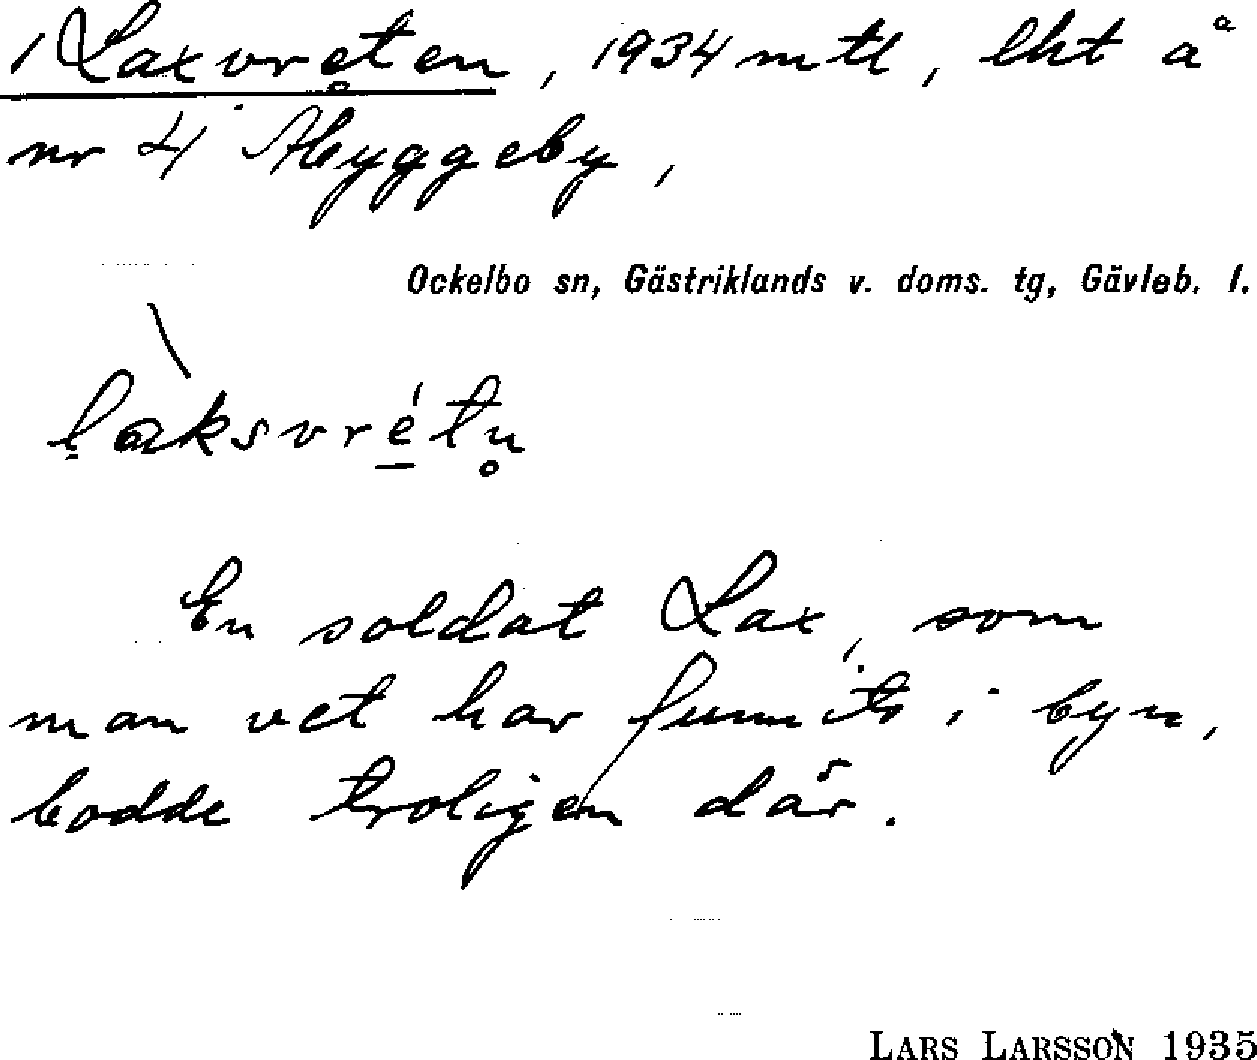 1 Laxvreten, 1934 mtl, lht å
nr 4 Åbyggeby,
Ockelbo sn, Gästriklands v. doms. tg, Gävleb. l.
laksvrétn̥
En soldat Lax, som
man vet har funnits i byn,
bodde troligen där.
LARS LARSSON 1935